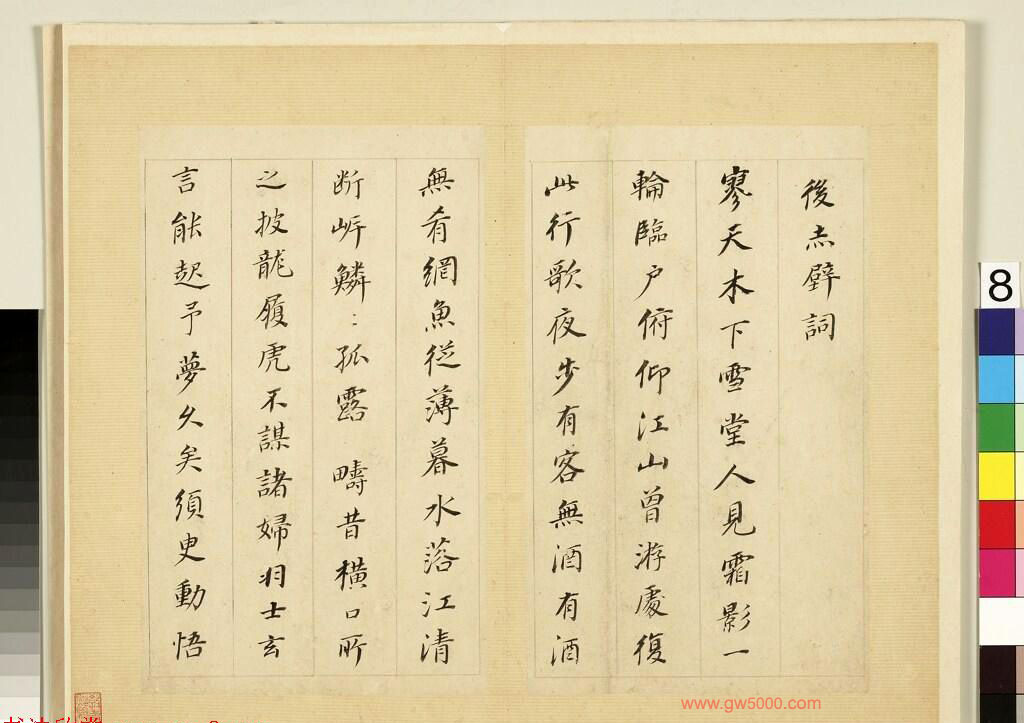 後赤壁詞
寥天木下雪堂人見霜影一
輪臨户俯仰江山曾游處復
此行歌夜步有客無酒有酒
無肴網魚從薄暮水落江清
断岸鱗〻孤露疇昔橫口所
之披龍履虎不謀諸婦羽士玄
言能起予夢久矣須臾動悟
8
www.gw5000.com